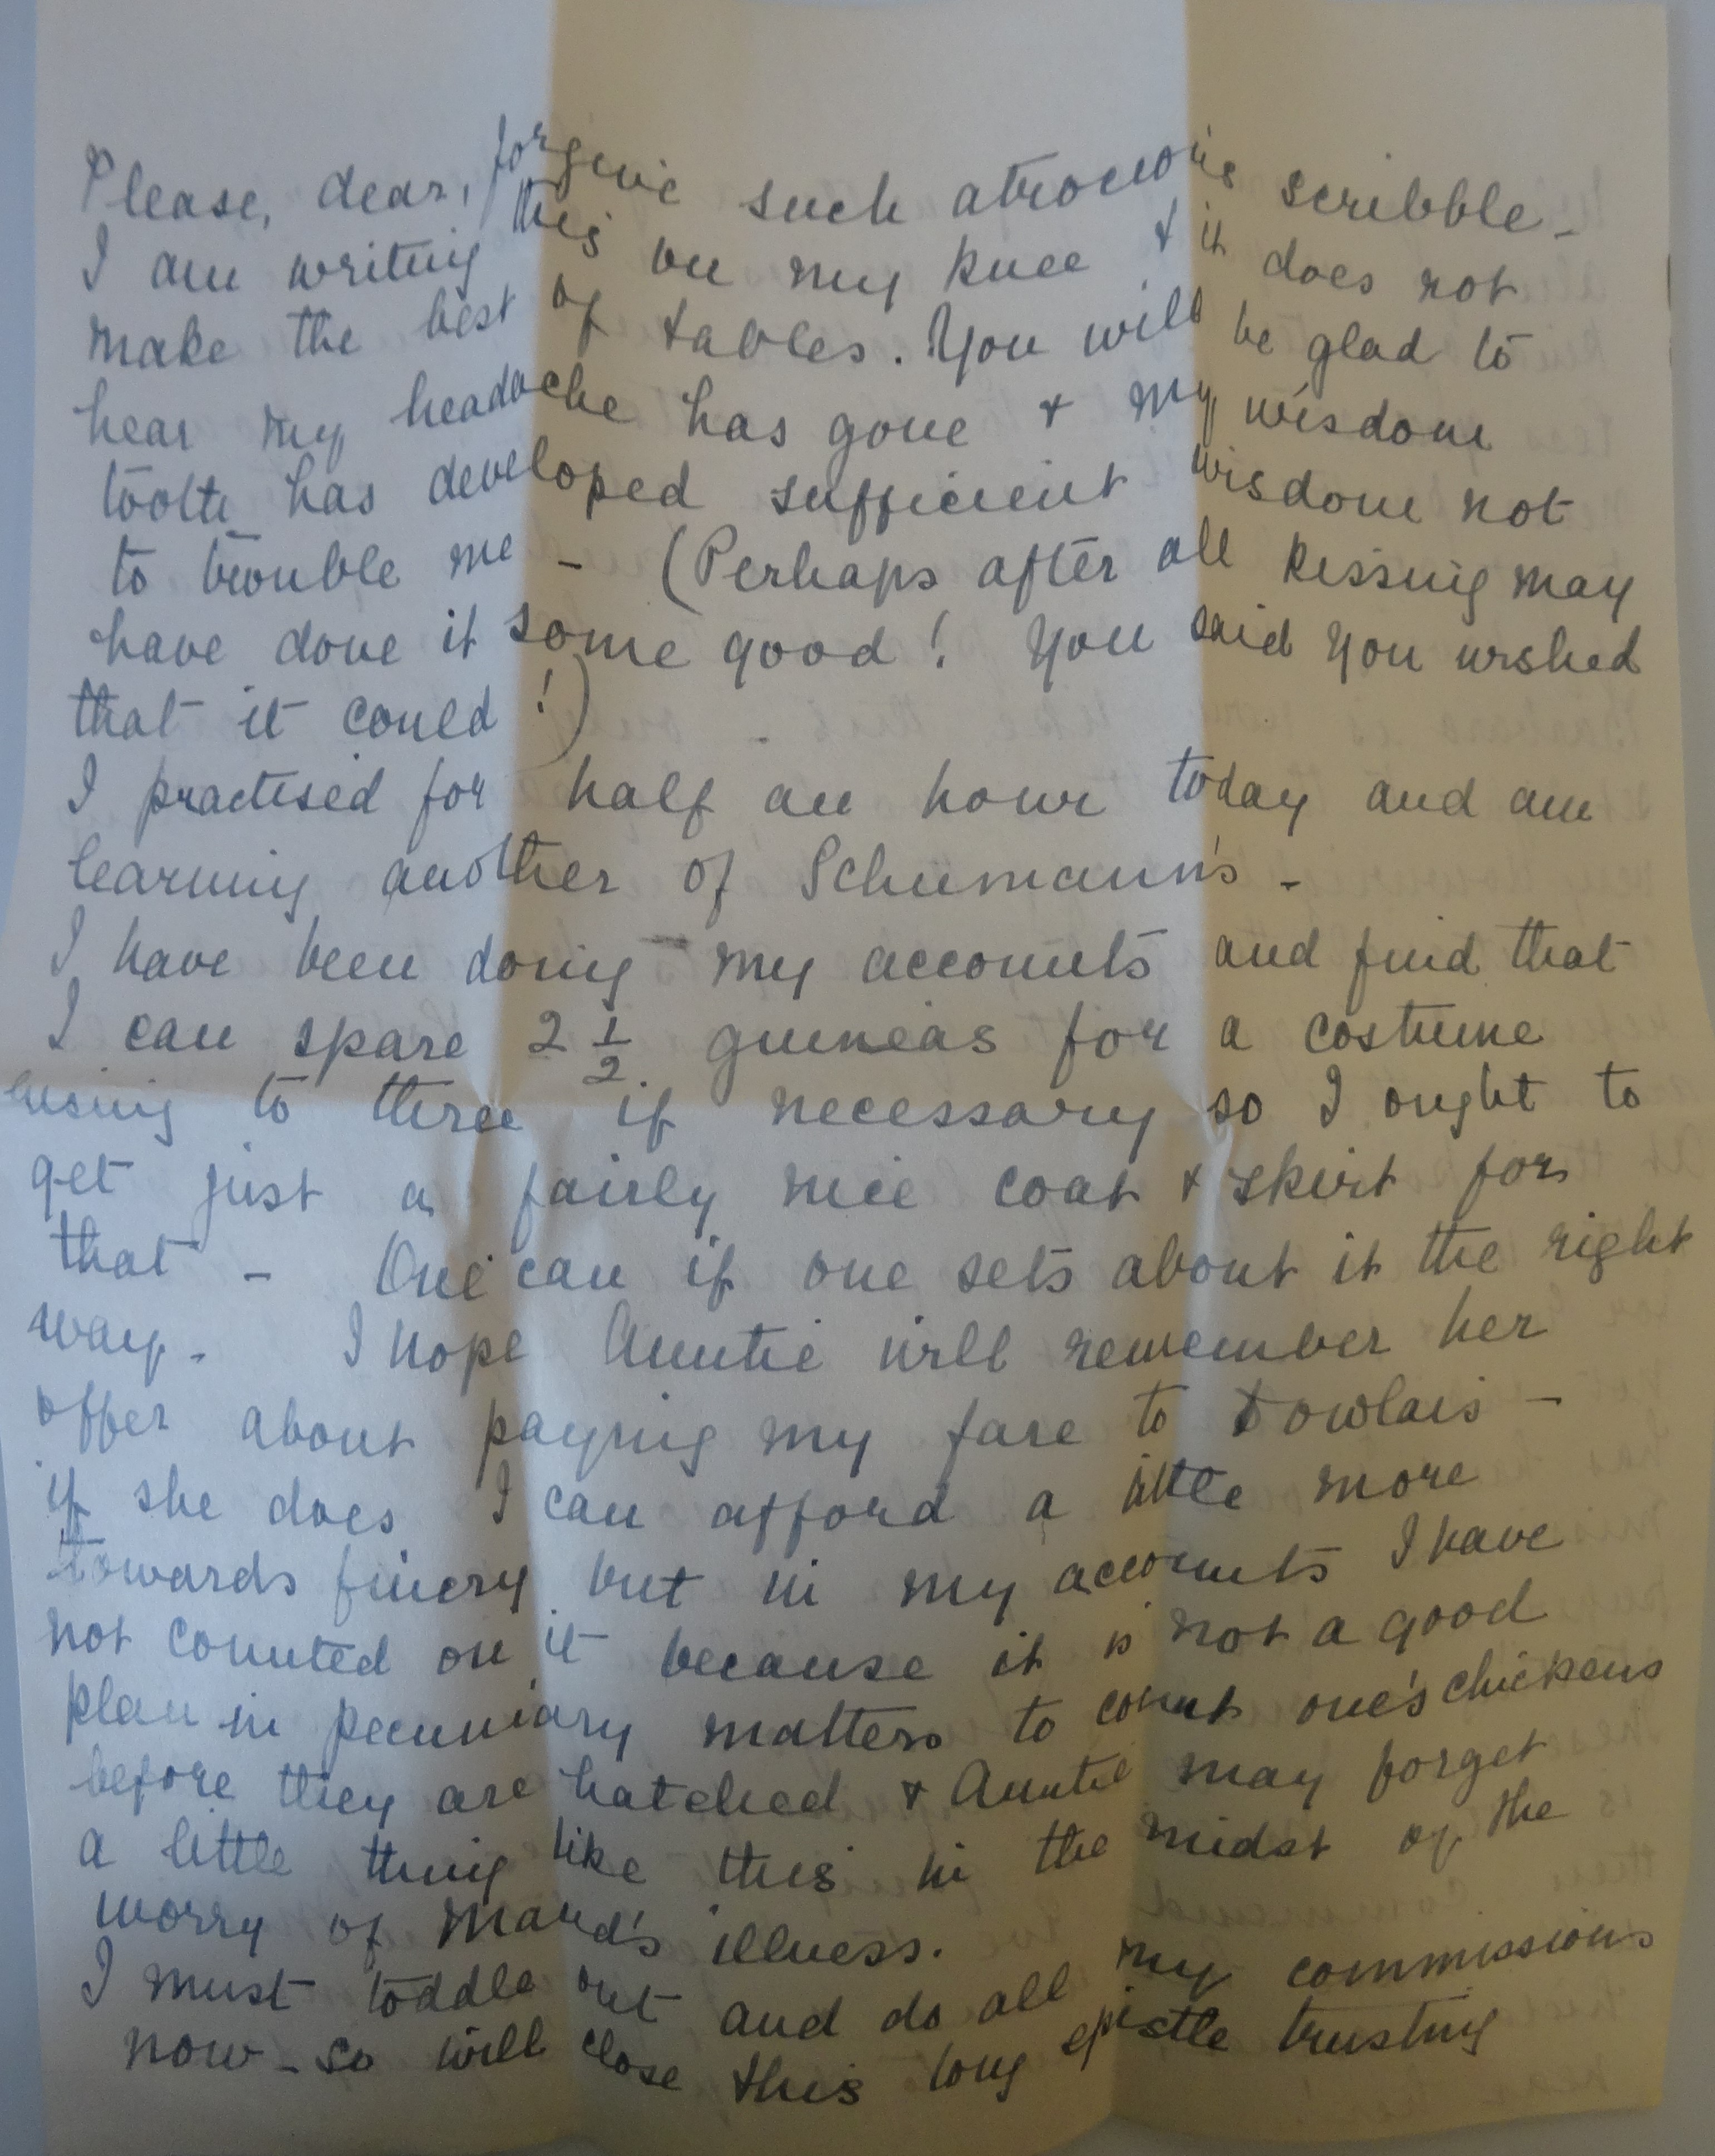 Please, dear, forgive such atrocious scribble -
I am writing this on my knee & it does not
make the best of tables. You will be glad to
hear my headache has gone & my wisdom
tooth has developed sufficient wisdom not
to trouble me - (Perhaps after all kissing may
have done it some good! You said you wished
that it could!)
I practised for half an hour today and am
learning another of Schumann's -
I have been doing my accounts and find that
I can spare 2 1/2 guineas for a costume
rising to three if necessary so I ought to
get just a fairly nice coat & skirt for
that - One can if one sets about it the right
way - I hope Auntie will remember her
offer about paying my fare to Dowlais -
if she does I can afford a little more
towards finery but in my accounts I have
not counted on it because it is not a good
plan in pecuniary matters to count one's chickens
before they are hatched & Auntie may forget
a little thing like this in the midst of the
worry of Maud's illness.
I must toddle out and do all my commissions
now - so will close this long epistle trusting